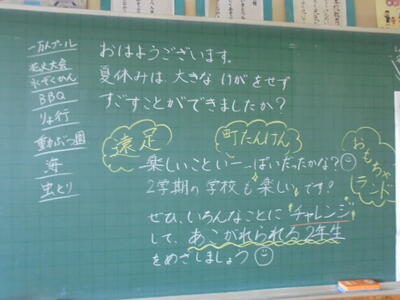 一万人プール
花火大会
すいぞくかん
BBQ
りょ行
動ぶつ園
海
虫とり
おはようございます。
夏休みは大きなけがをせず
すごすことができましたか？
遠足
町たんけん
おもちゃランド
楽しいこといーーっぱいだったかな？
2学期の学校も楽しいです？
ぜひ、いろんなことにチャレンジ
して、あこがれられる2年生
をめざしましょう